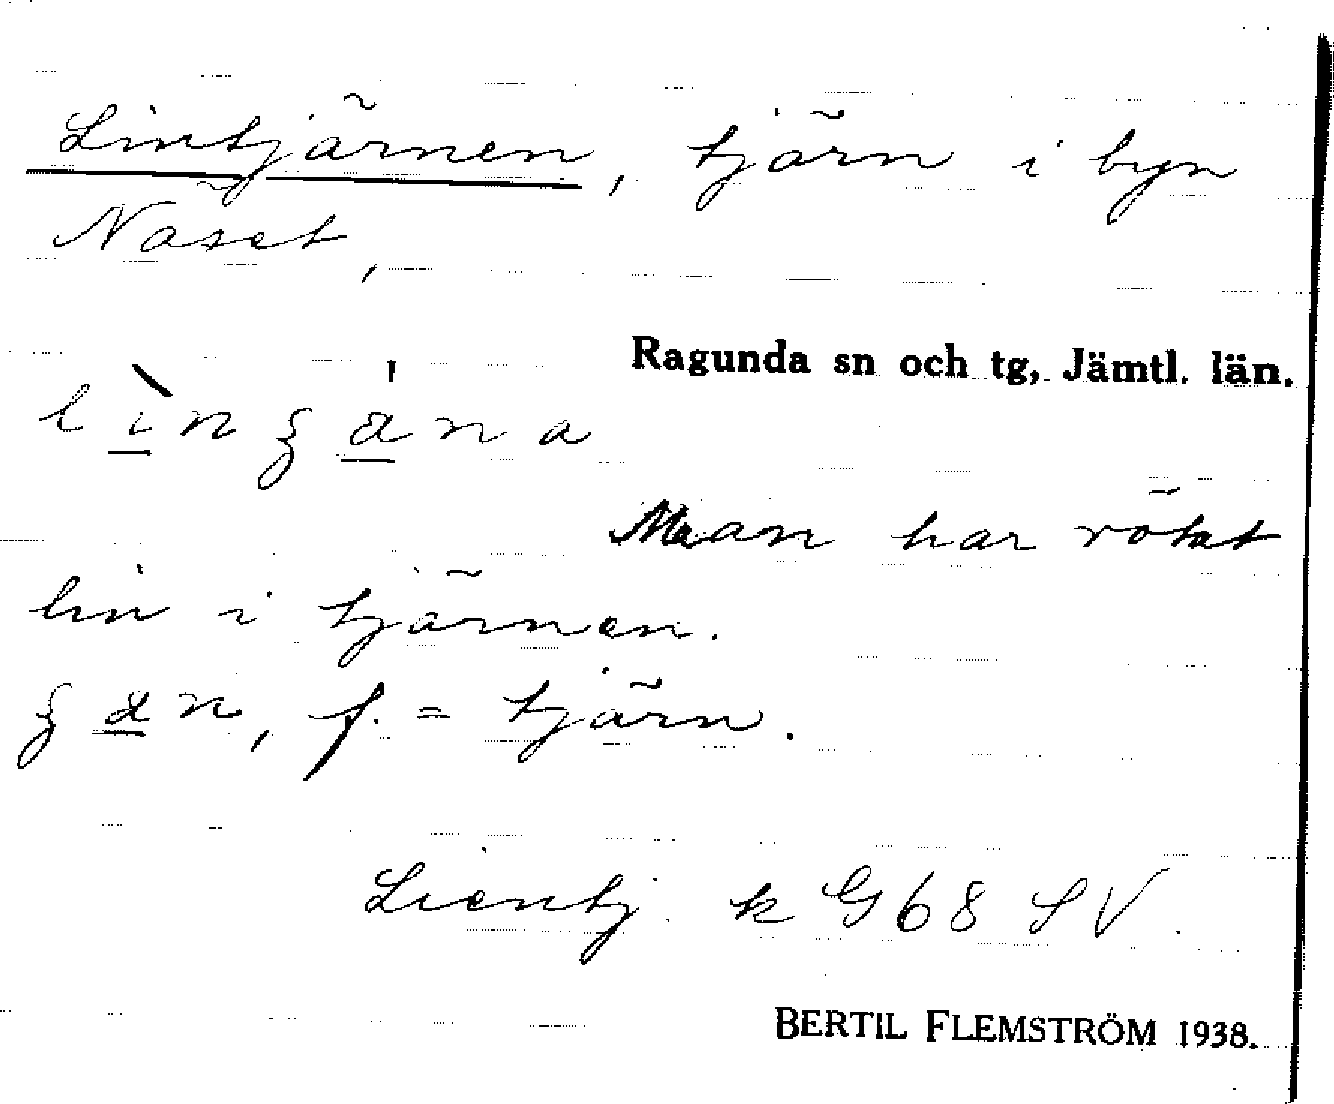 Lintjärnen, tjärn i byn
Näset,
Ragunda sn och tg, Jämtl. län.
Man har rötat
lin i tjärnen.
f. = tjärn.
Lientj. k G68 SV.
BERTIL FLEMSTRÖM 1938.